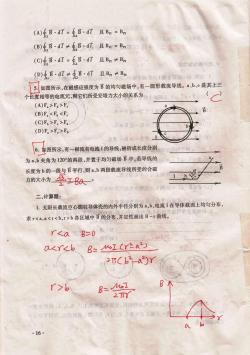 (A) ∮B·dl = ∮B·dl 且 B_P1 = B_P2
(B) ∮B·dl ≠ ∮B·dl 且 B_P1 = B_P2
(C) ∮B·dl = ∮B·dl 且 B_P1 ≠ B_P2
(D) ∮B·dl ≠ ∮B·dl 且 B_P1 ≠ B_P2
5. 如图所示,在磁感应强度为 B 的均匀磁场中,有一圆形载流导线,a,b,c 是其上三
个长度相等的电流元,则它们所受安培力大小的关系为 C
(A) Fa>Fb>Fc
(B) Fa<Fb<Fc
(C) Fb>Fc>Fa
(D) Fa>Fc>Fb
6. 如图所示,有一根流有电流 I 的导线,被折成长度分别
为 a,b 夹角为 120°的两段,并置于均匀磁场 B 中,若导线的
长度为 b 的一段与 B 平行,则 a,b 两段载流导线所受的合磁
力的大小为
二、计算题:
1. 无限长载流空心圆柱导体壳的内外半径分别为 a,b,电流 I 在导体截面上均匀分布,
求 r<a,a<r<b,r>b 各区域中 B 的分布,并定性画出 B-r 曲线。
r<a B=0
a<r<b B= μ₀I(r²-a²) / 2π(b²-a²)r
r>b B= μ₀I / 2πr
B
a b
- 16 -